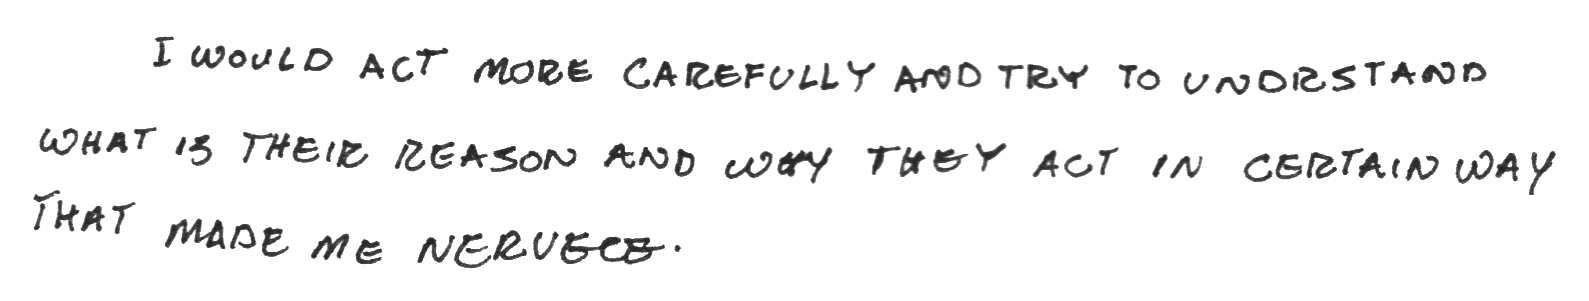 I WOULD ACT MORE CAREFULLY AND TRY TO UNDRSTAND
WHAT IS THEIR REASON AND WHY THEY ACT IN CERTAIN WAY
THAT MADE ME